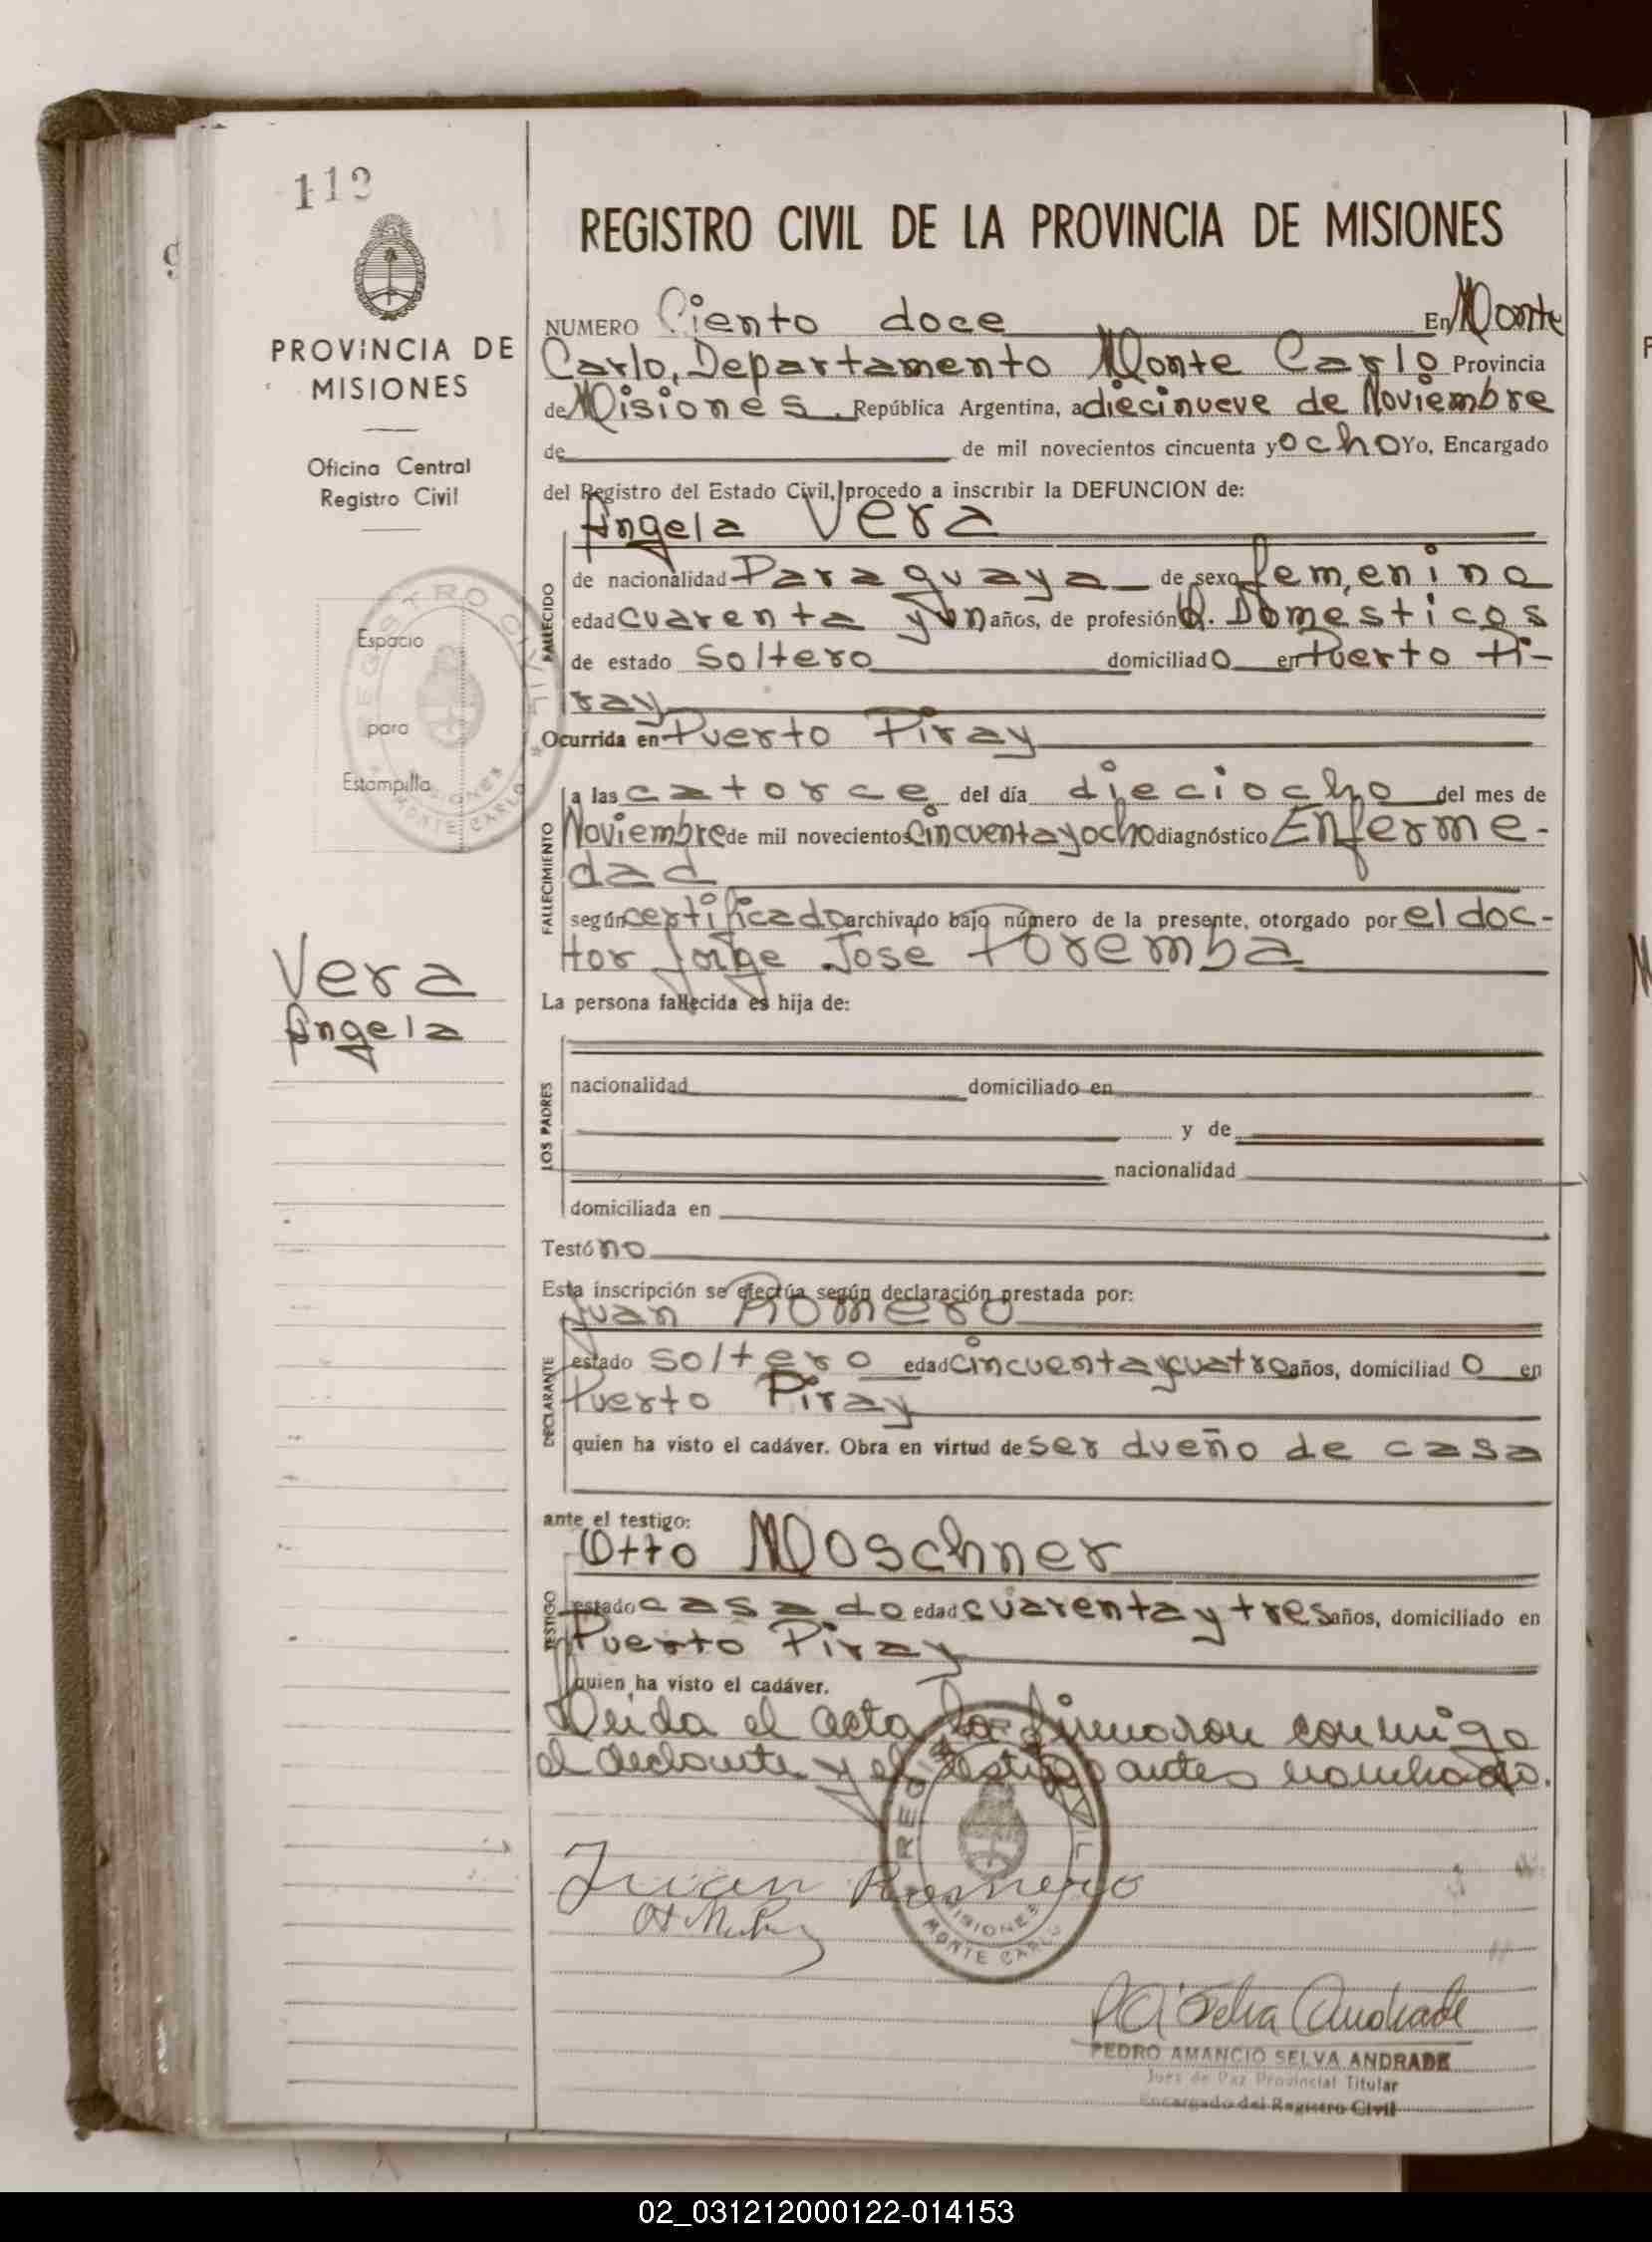 112
PROVINCIA DE
MISIONES
Oficina Central
Registro Civil
Espacio
para
Estampilla
REGISTRO CIVIL
MISIONES
MONTE CARLO
Vera
Angela
REGISTRO CIVIL DE LA PROVINCIA DE MISIONES
NUMERO Ciento doce En Monte
Carlo, Departamento Monte Carlo Provincia
de Misiones. República Argentina, a diecinueve de Noviembre
de de mil novecientos cincuenta y ocho Yo, Encargado
del Registro del Estado Civil, procedo a inscribir la DEFUNCION de:
Angela Vera
FALLECIDO
de nacionalidad Paraguaya de sexo femenino
edad cuarenta y un años, de profesión Q. Domesticos
de estado Soltero domiciliado en Puerto Pi-
ray
Ocurrida en Puerto Piray
FALLECIMIENTO
a las catorce del día dieciocho del mes de
Noviembre de mil novecientos cincuenta y ocho diagnóstico Enferme-
dad
según certificado archivado bajo número de la presente, otorgado por el doc-
tor Jorge Jose Poremba
La persona fallecida es hija de:
LOS PADRES
nacionalidad domiciliado en
y de
nacionalidad
domiciliada en
Testó no
Esta inscripción se efectúa según declaración prestada por:
Juan Romero
DECLARANTE
estado soltero edad cincuenta y cuatro años, domiciliado en
Puerto Piray
quien ha visto el cadáver. Obra en virtud de ser dueño de casa
ante el testigo:
Otto Moschner
TESTIGO
estado casado edad cuarenta y tres años, domiciliado en
Puerto Piray
quien ha visto el cadáver.
Leida el acta la firmaron conmigo
el declarante y el testigo antes nombrado.
REGISTRO CIVIL
MISIONES
MONTE CARLO
Juan Romero
P A Selva Andrade
PEDRO AMANCIO SELVA ANDRADE
Juez de Paz Provincial Titular
Encargado del Registro Civil
02_031212000122-014153